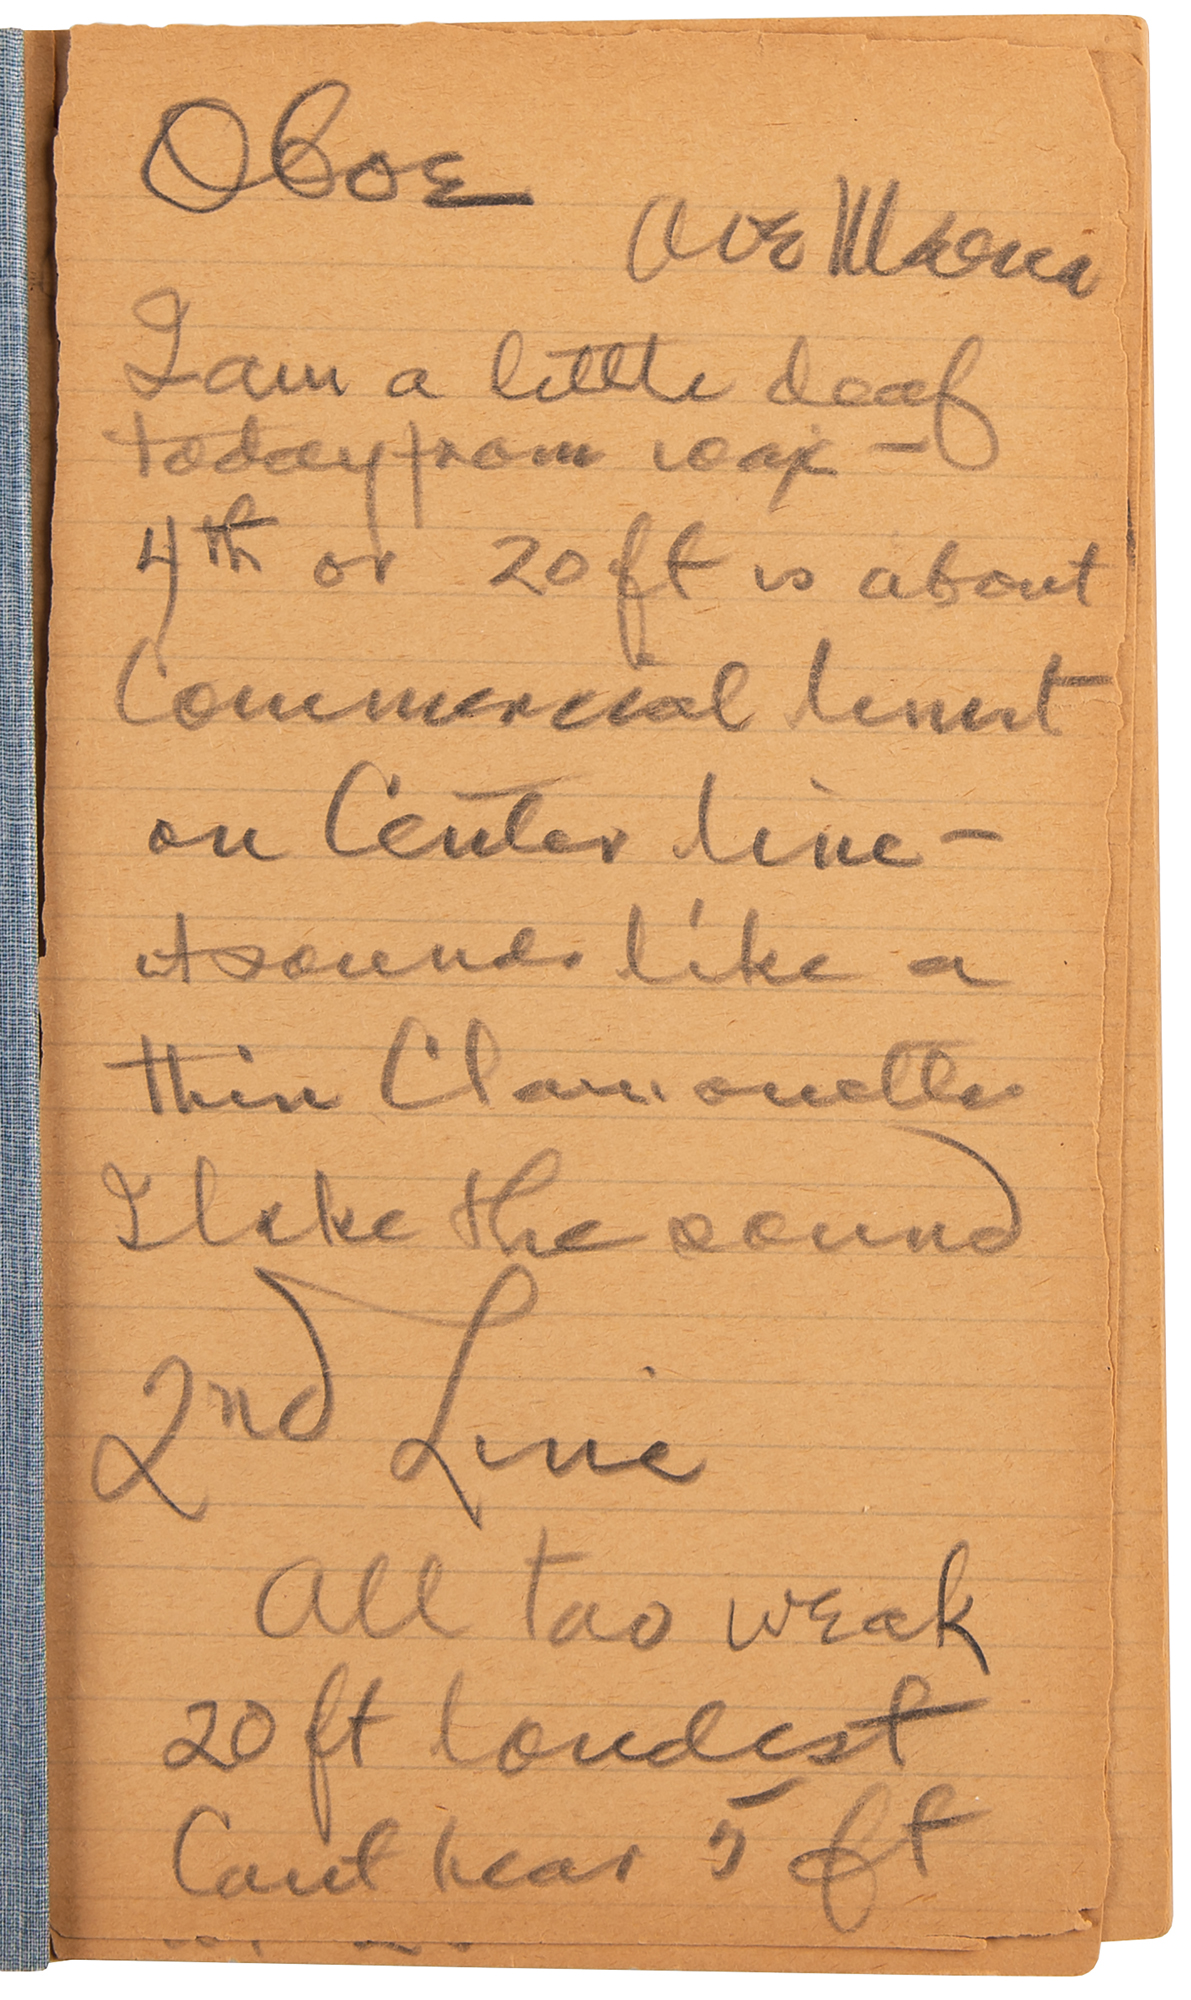 Oboe
Ave Maria
I am a little deaf
today from wax —
4th or 20 ft is about
Commercial limit
on Center line —
it sounds like a
thin Clarionette
I like the sound
2nd Line
All too weak
20 ft loudest
Cant hear 5 ft